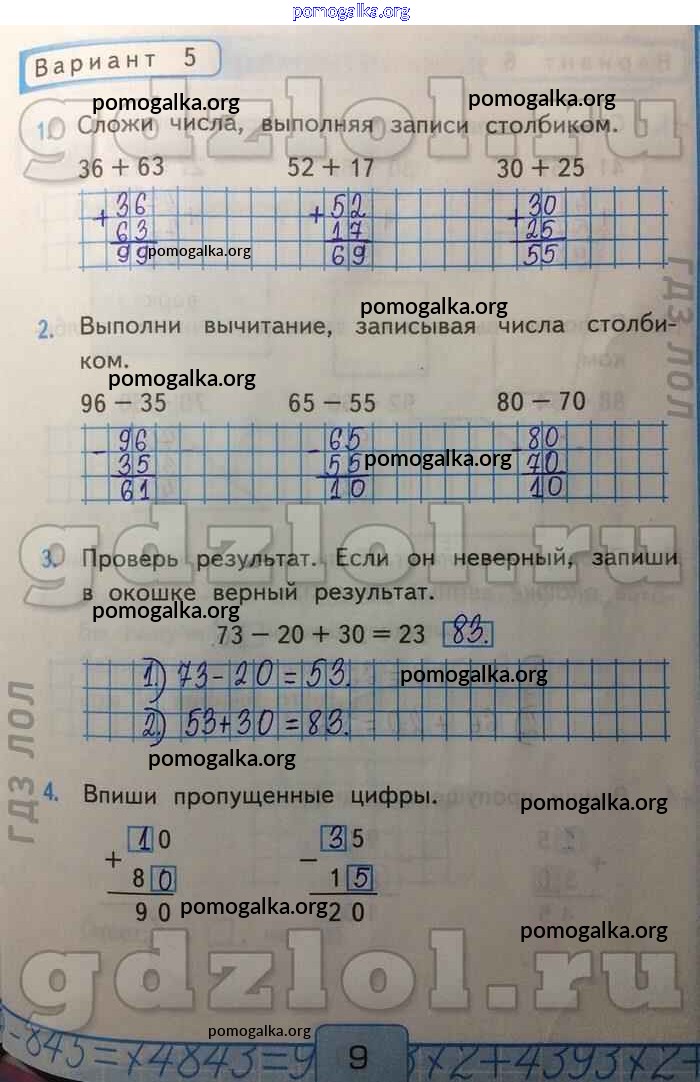 pomogalka.org
Вариант 5
pomogalka.org pomogalka.org
gdzlol.ru
1. Сложи числа, выполняя записи столбиком.
36 + 63 52 + 17 30 + 25
+ 36 + 52 + 30
63 17 25
99 pomogalka.org 69 55
ГДЗ ЛОЛ
pomogalka.org
2. Выполни вычитание, записывая числа столби-
ком.
pomogalka.org
96 − 35 65 − 55 80 − 70
- 96 - 65 - 80
35 55 pomogalka.org 70
61 10 10
gdzlol.ru
3. Проверь результат. Если он неверный, запиши
в окошке верный результат.
pomogalka.org
73 − 20 + 30 = 23 83.
1) 73-20=53. pomogalka.org
2) 53+30=83.
pomogalka.org
ГДЗ ЛОЛ
4. Впиши пропущенные цифры.
pomogalka.org
10 35
+ −
80 15
90 pomogalka.org 20
pomogalka.org
gdzlol.ru
pomogalka.org
-845=×4843=9 9 3×2+4393×2=